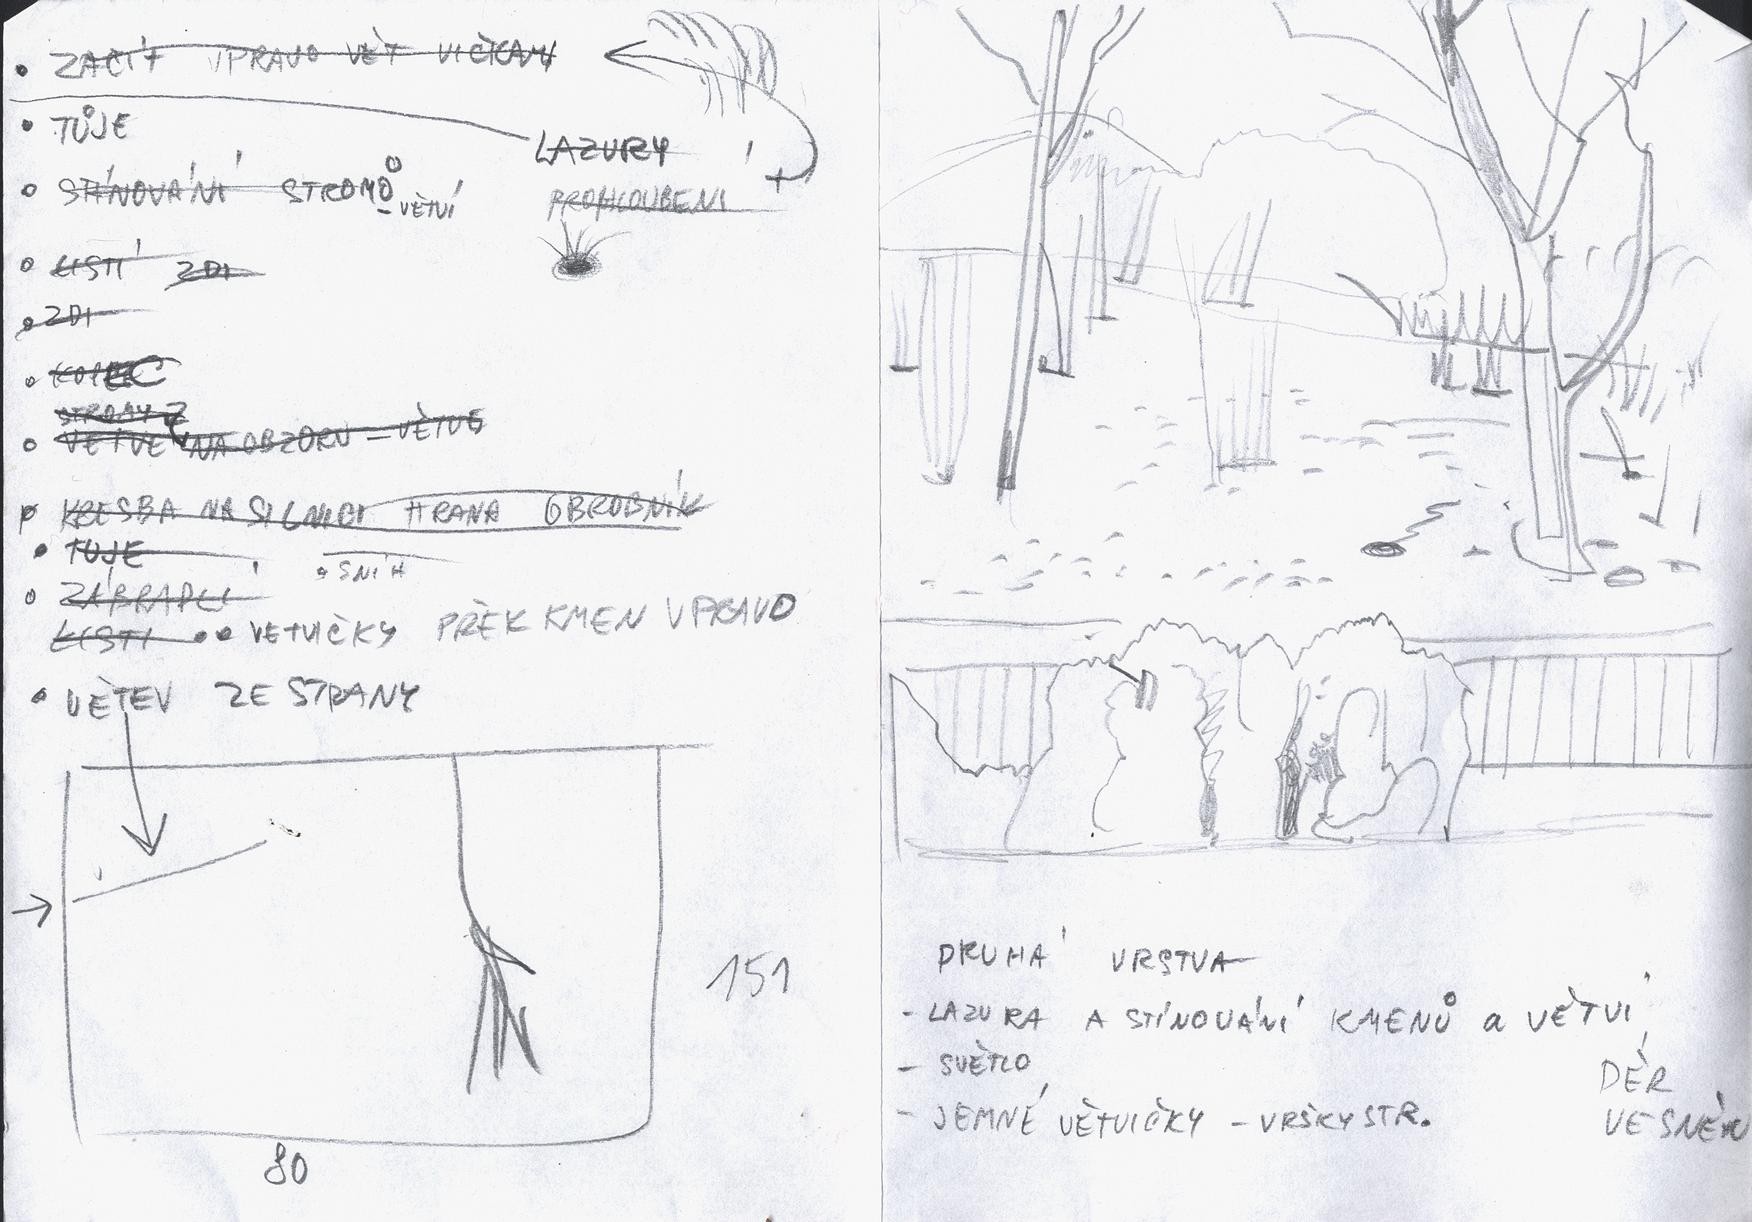 ZAČÍT VPRAVO VĚTVIČKAMI
TŮJE
LAZURY
STÍNOVÁNÍ STROMŮ
- VĚTVÍ
PROHLOUBENÍ
LISTÍ ZDI
ZDI
KOPEC
STROMY Z
VĚTVE NA OBZORU - VĚTVE
KRESBA NA SILNICI HRANA OBRUBNÍK
TUJE
SNÍH
ZÁBRADLÍ
LISTÍ VĚTVIČKY PŘEK KMEN VPRAVO
VĚTEV ZE STRANY
151
80
DRUHÁ VRSTVA
- LAZURA A STÍNOVÁNÍ KMENŮ a VĚTVÍ
- SVĚTLO
DĚR
- JEMNÉ VĚTVIČKY - VRŠKY STR.
VE SNĚHU